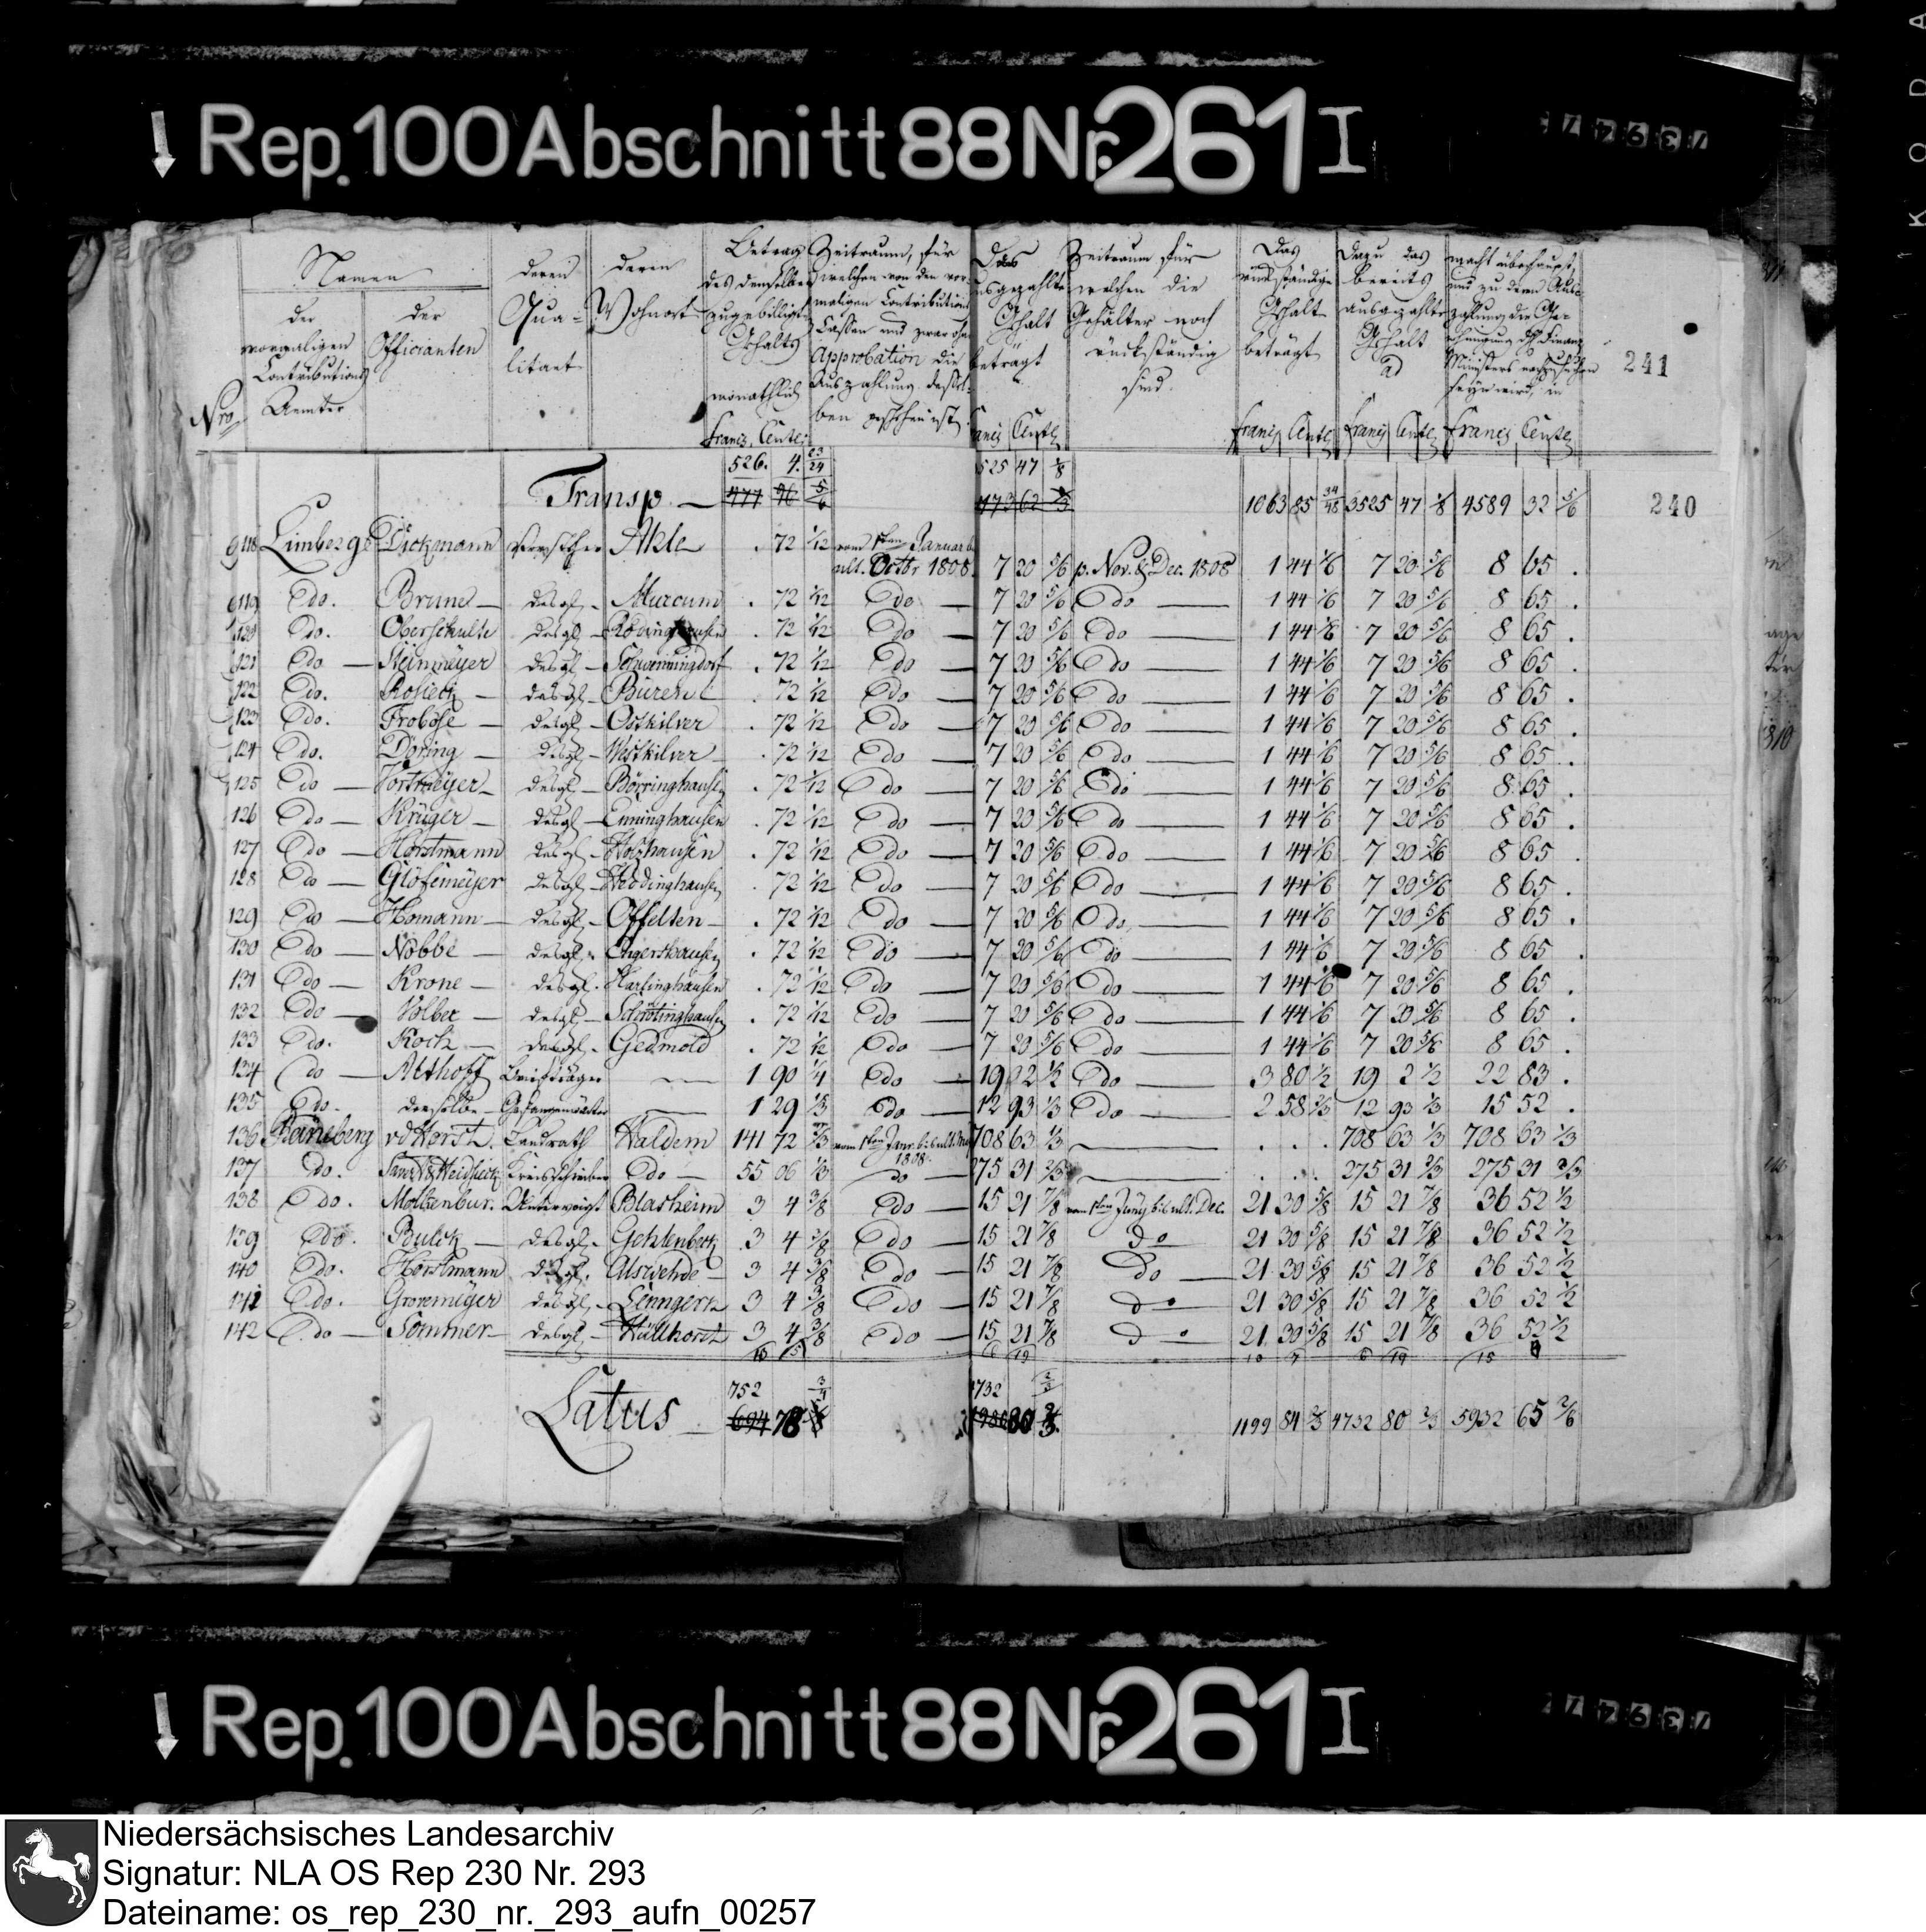 Rep. 100 Abschnitt 88 Nr. 261 I
Namen
der vormaligen Contributions Aemter
der Officianten
deren Qua= litaet
deren Wohnort
Betrag des denselben zugebilligten Gehalts monathlich
Zeitraum, für welchen von den vor= maligen Contributions Cassen und zwar ohne Approbation die Auszahlung dessel= ben geschehen ist
Das ausgezahlte Gehalt beträgt
Zeitraum für welchen die Gehälter noch rückständig sind.
Das rückständige Gehalt beträgt
Dazu das bereits ausgezahlte Gehalt ad
macht überhaupt,
Nro.
Francs, Cents
Francs Cents
Francs Cents
Francs Cents
Francs Cents
241
240
526. 4. 23/24
525 47 1/8
Transp. — 1063 85 34/48 3525 47 1/8 4589 32 5/6
118 Limberge Dickmann Vorsteher Ahle . 72 1/12 vom 1ten Januar b. ult. Octbr 1808. 7 20 5/6 p. Nov. & Dec. 1808 1 44 1/6 7 20 5/6 8 65 .
119 do. Brune — desgl. — Murcum . 72 1/12 do — 7 20 5/6 do — 1 44 1/6 7 20 5/6 8 65 .
120 do. Oberschulte desgl — Rödinghausen . 72 1/12 do — 7 20 5/6 do — 1 44 1/6 7 20 5/6 8 65 .
121 do — Steinmeyer desgl — Schwenningdorf . 72 1/12 do — 7 20 5/6 do — 1 44 1/6 7 20 5/6 8 65 .
122 do. — desgl — Büren . 72 1/12 do — 7 20 5/6 do — 1 44 1/6 7 20 5/6 8 65 .
123 do. Froböse — desgl — Ostkilver . 72 1/12 do — 7 20 5/6 do — 1 44 1/6 7 20 5/6 8 65 .
124 do. Döring — desgl — Westkilver . 72 1/12 do — 7 20 5/6 do — 1 44 1/6 7 20 5/6 8 65 .
125 do — Vortmeyer — desgl — Börringhausen . 72 1/12 do — 7 20 5/6 do — 1 44 1/6 7 20 5/6 8 65 .
126 do — Krüger — desgl — Eininghausen . 72 1/12 do — 7 20 5/6 do — 1 44 1/6 7 20 5/6 8 65 .
127 do — Horstmann desgl — Holzhausen . 72 1/12 do — 7 20 5/6 do — 1 44 1/6 7 20 5/6 8 65 .
128 do — Glösemeyer desgl — Heddinghausen . 72 1/12 do — 7 20 5/6 do — 1 44 1/6 7 20 5/6 8 65 .
129 do — Homann — desgl — Offelten — . 72 1/12 do — 7 20 5/6 do — 1 44 1/6 7 20 5/6 8 65 .
130 do — Nobbe — desgl. Engershausen . 72 1/12 do — 7 20 5/6 do — 1 44 1/6 7 20 5/6 8 65 .
131 do — Krone — desgl. Harlinghausen . 72 1/12 do — 7 20 5/6 do — 1 44 1/6 7 20 5/6 8 65 .
132 do — Volber — desgl — Schrötinghausen . 72 1/12 do — 7 20 5/6 do — 1 44 1/6 7 20 5/6 8 65 .
133 do. Koch — desgl. Gesmold . 72 1/12 do — 7 20 5/6 do — 1 44 1/6 7 20 5/6 8 65 .
134 do — Althoff Briefträger — 1 90 1/4 do — 19 02 1/2 do — 3 80 1/2 19 2 1/2 22 83 .
135 do. derselbe — Gefangenwärter — 1 29 1/3 do — 12 93 1/3 do — 2 58 2/3 12 93 1/3 15 52 .
136 Raneberg v d Horst. Landrath Haldem 141 72 2/3 vom 1ten Janr. bis ult. May 1808. 708 63 1/3 — . . . 708 63 1/3 708 63 1/3
137 do. Kreisschreiber do — 55 06 1/3 do — 275 31 2/3 — . . . 275 31 2/3 275 31 2/3
138 do. Moltzenbur. Untervoigt Blasheim 3 4 3/8 do — 15 21 7/8 vom 1ten Juny bis ult. Dec. 21 30 5/8 15 21 7/8 36 52 1/2
139 do. Bulck — desgl. Gehlenbeck 3 4 3/8 do — 15 21 7/8 do 21 30 5/8 15 21 7/8 36 52 1/2
140 do. Horstmann desgl. Alswehde — 3 4 3/8 do — 15 21 7/8 do — 21 30 5/8 15 21 7/8 36 52 1/2
141 do. Grovemeyer desgl — Lenngern 3 4 3/8 do — 15 21 7/8 do 21 30 5/8 15 21 7/8 36 52 1/2
142 do — Sommer — desgl — Hüllhorst 3 4 3/8 do — 15 21 7/8 do 21 30 5/8 15 21 7/8 36 52 1/2
752 3/4 4732 2/3
Latus — 78 80 1199 84 2/3 4732 80 2/3 5932 65 2/6
Rep. 100 Abschnitt 88 Nr. 261 I
Niedersächsisches Landesarchiv
Signatur: NLA OS Rep 230 Nr. 293
Dateiname: os_rep_230_nr._293_aufn_00257